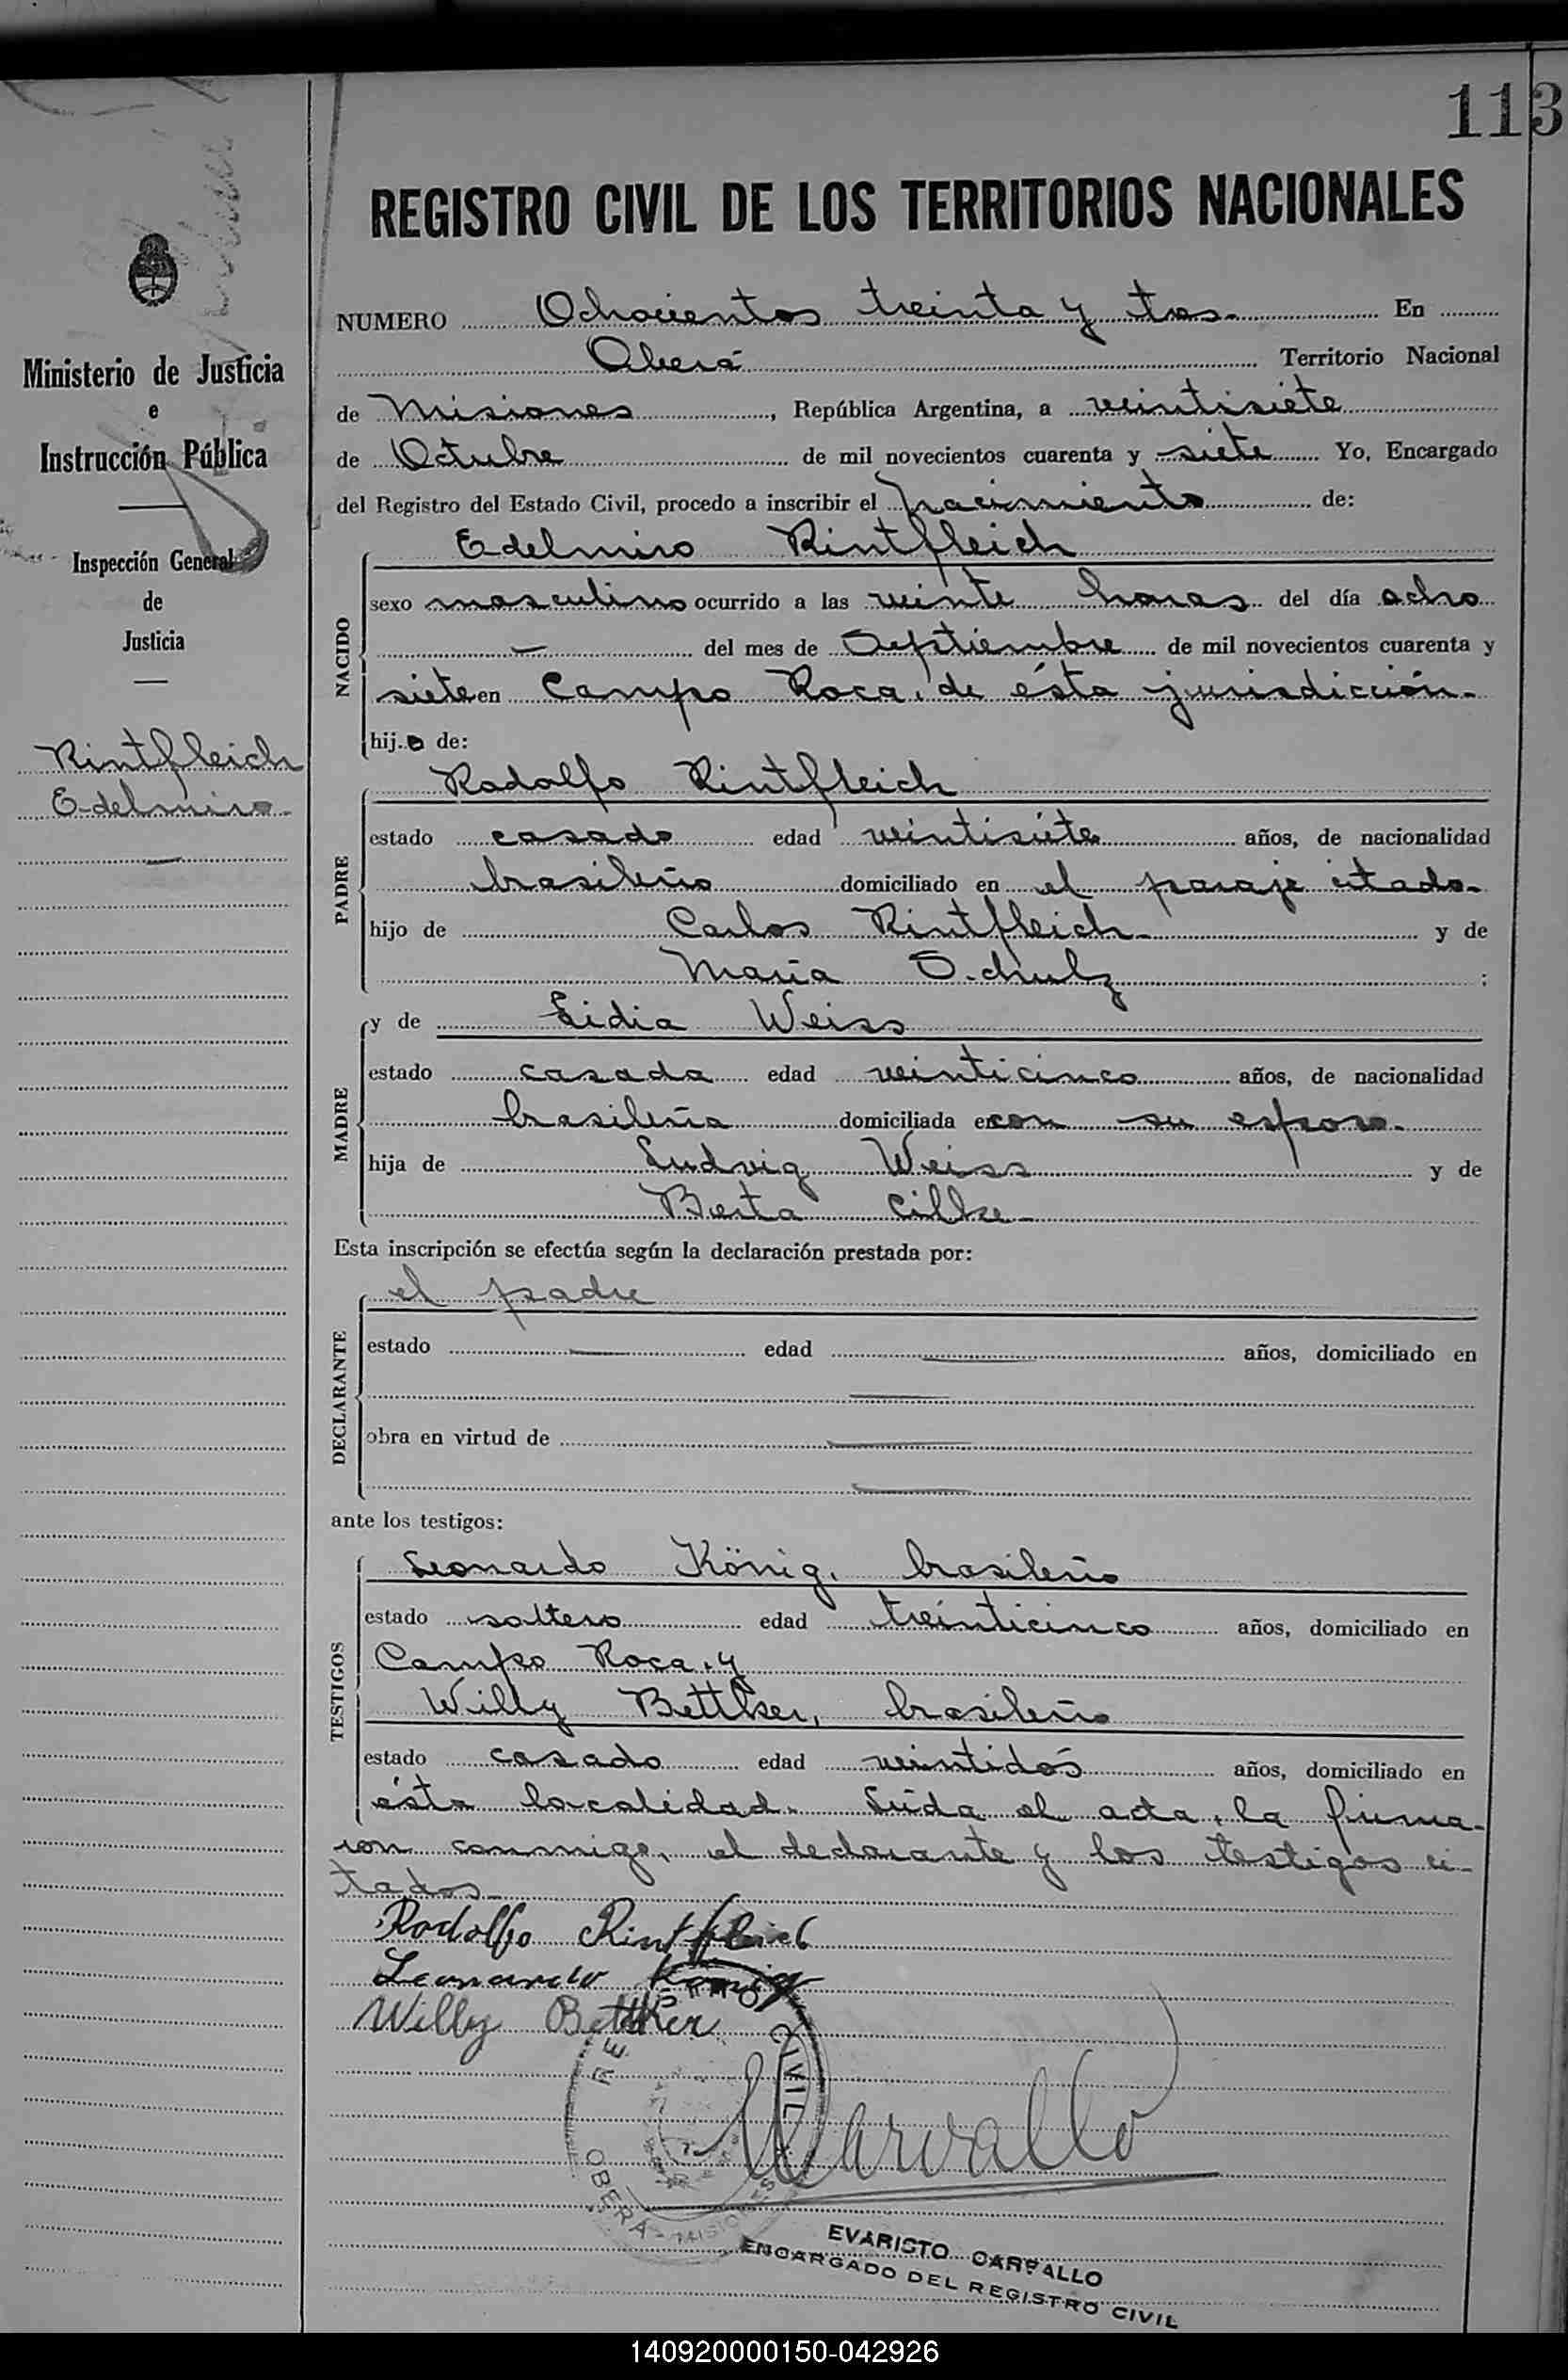 113
REGISTRO CIVIL DE LOS TERRITORIOS NACIONALES
NUMERO Ochocientos treinta y tres. En
Oberá Territorio Nacional
de Misiones, República Argentina, a veintisiete
de Octubre de mil novecientos cuarenta y siete Yo, Encargado
del Registro del Estado Civil, procedo a inscribir el nacimiento de:
Ministerio de Justicia
e
Instrucción Pública
Inspección General
de
Justicia
Rintfleich
Edelmiro
NACIDO
Edelmiro Rintfleich
sexo masculino ocurrido a las veinte horas del día ocho
— del mes de Septiembre de mil novecientos cuarenta y
siete en Campo Roca, de ésta jurisdicción.
hijo de:
PADRE
Rodolfo Rintfleich
estado casado edad veintisiete años, de nacionalidad
brasileño domiciliado en el paraje citado.
hijo de Carlos Rintfleich y de
María Schulz ;
MADRE
y de Lidia Weiss
estado casada edad veinticinco años, de nacionalidad
brasileña domiciliada en con su esposo.
hija de Ludvig Weiss y de
Berta Cilke
Esta inscripción se efectúa según la declaración prestada por:
DECLARANTE
el padre
estado — edad — años, domiciliado en
—
obra en virtud de —
—
ante los testigos:
TESTIGOS
Leonardo König, brasileño
estado soltero edad treinticinco años, domiciliado en
Campo Roca, y
Willy Bettker, brasileño
estado casado edad veintidós años, domiciliado en
ésta localidad. Leída el acta, la firma-
ron conmigo, el declarante y los testigos ci-
tados.
Rodolfo Rintfleich
Leonardo König
Willy Bettker
CIVIL
OBERÁ - MISIONES
Carvallo
EVARISTO CARVALLO
ENCARGADO DEL REGISTRO CIVIL
140920000150-042926